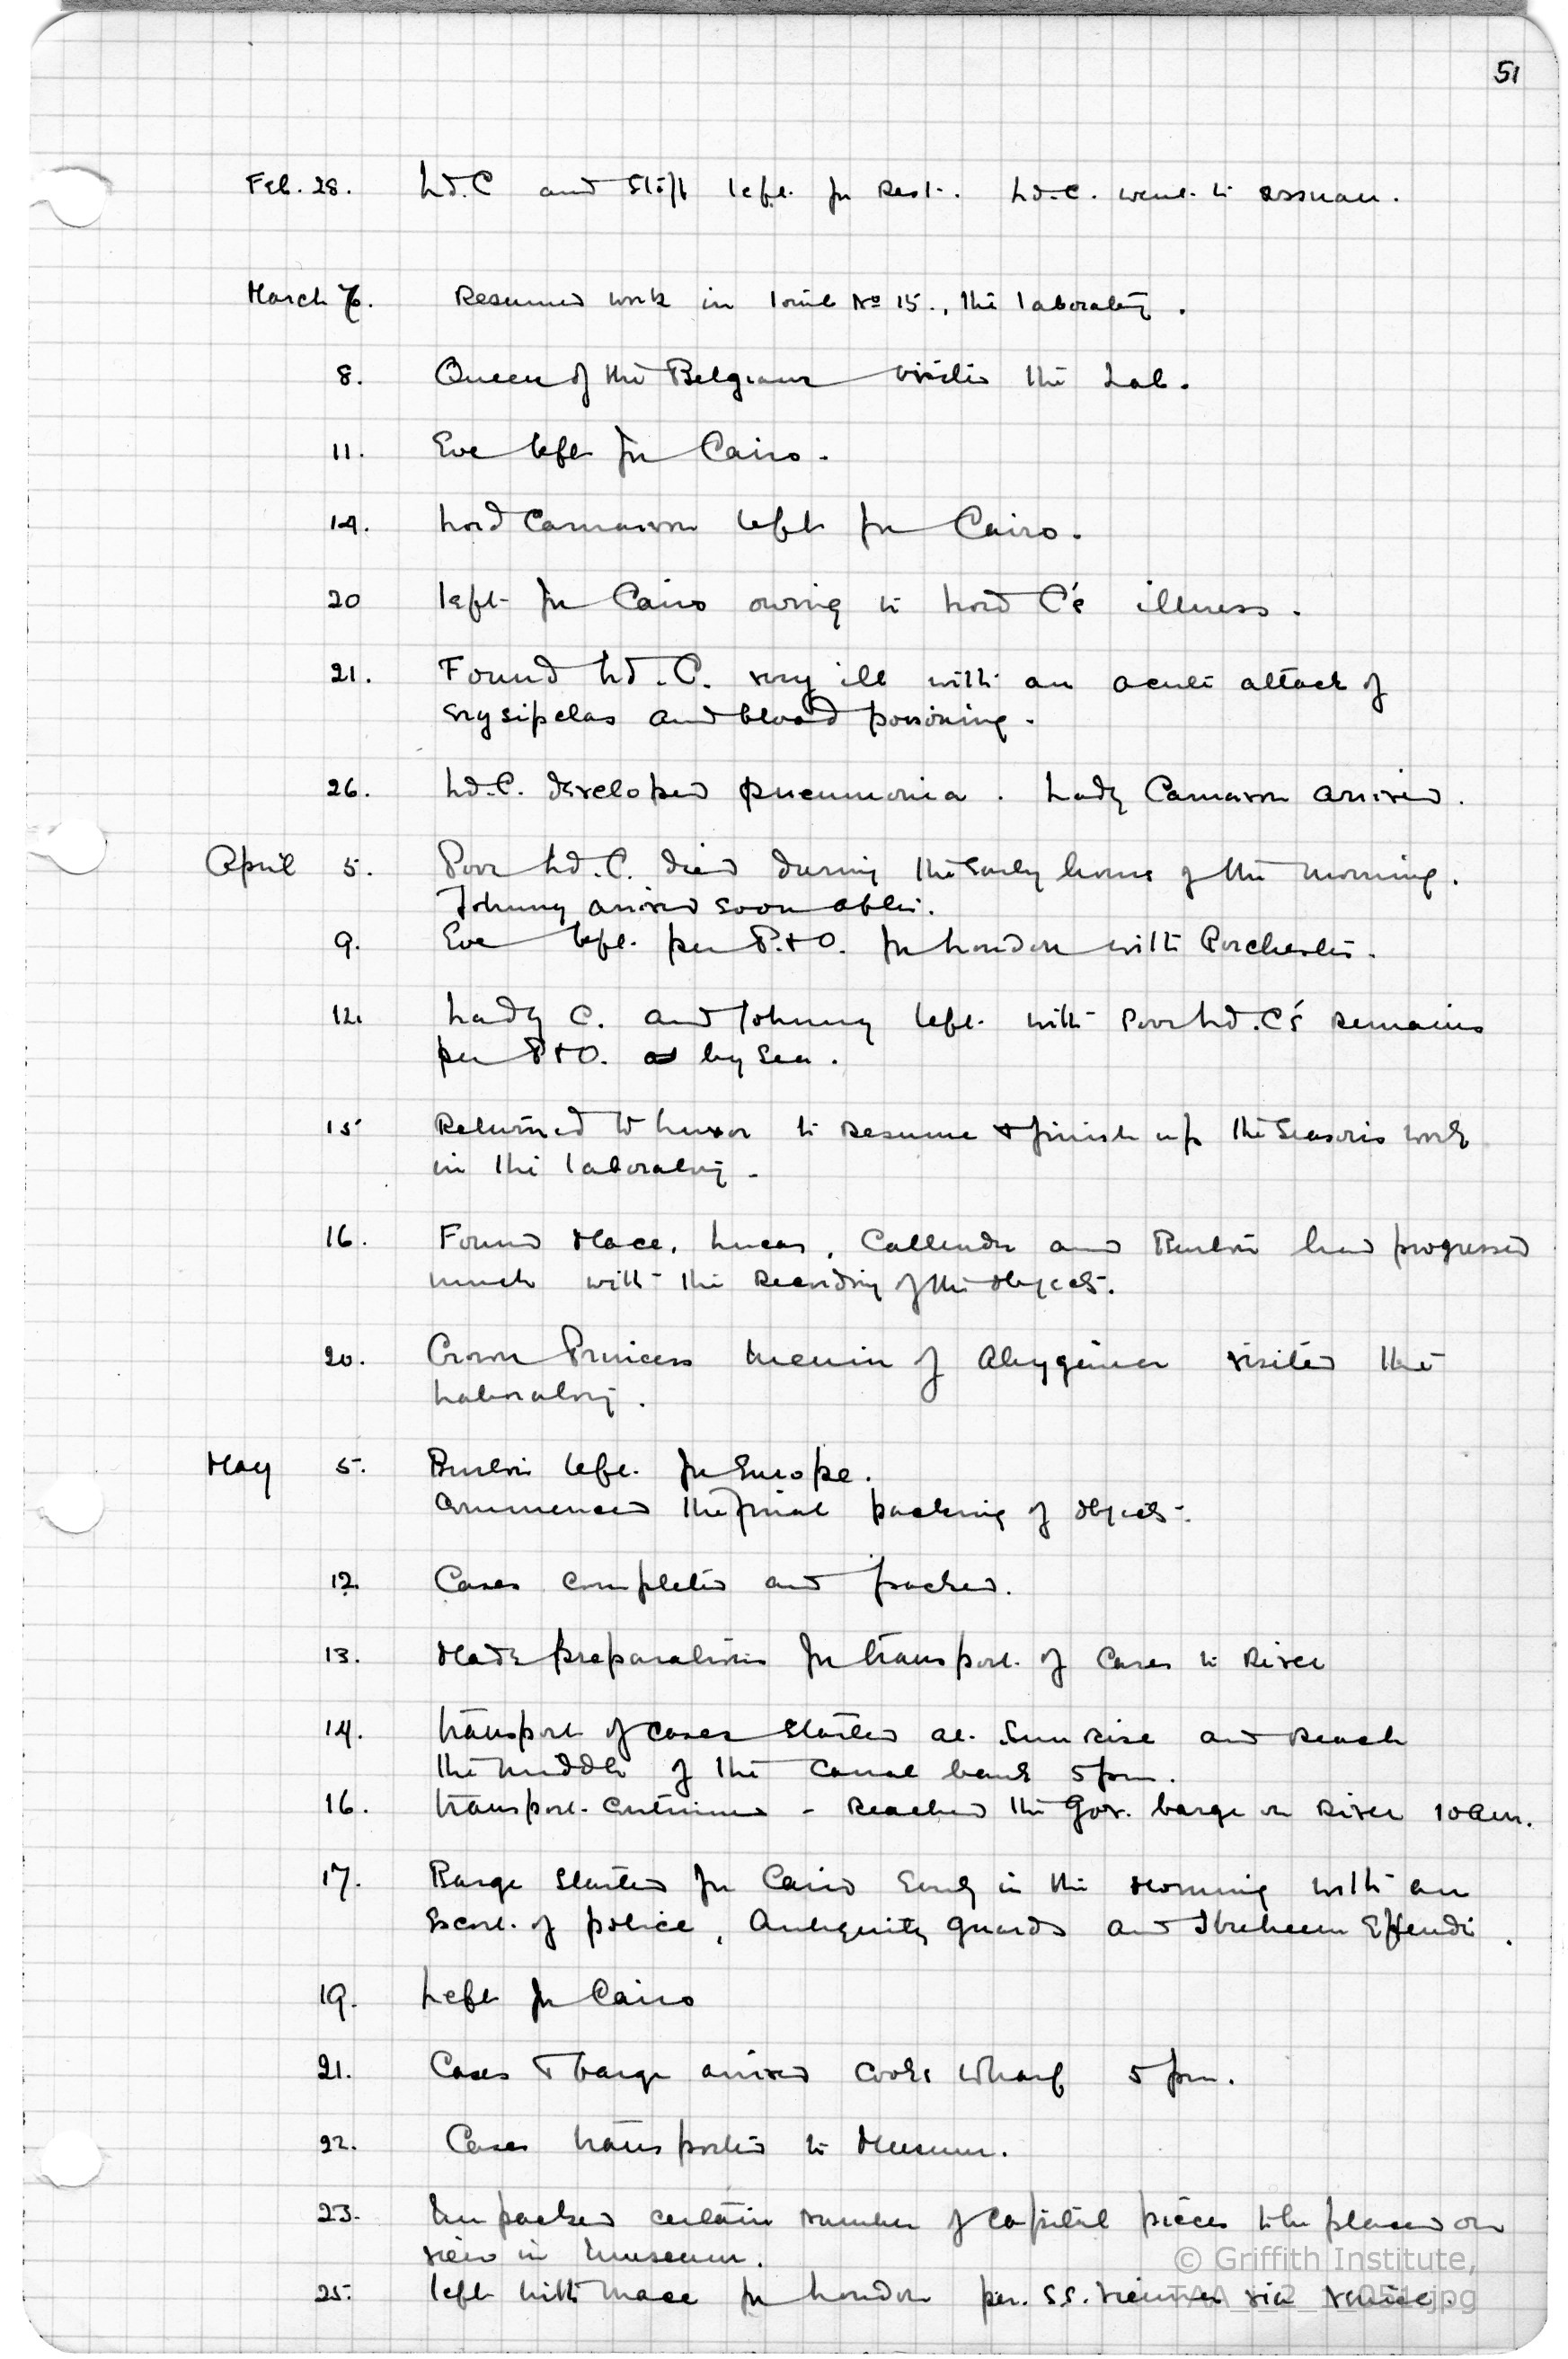 51
Feb. 28. Ld. C and Staff left for rest. Ld. C. went to Assuan.
March 6. Resumed work in tomb No 15., the laboratory.
8. Queen of the Belgians visited the Lab.
11. Eve left for Cairo.
14. Lord Carnarvon left for Cairo.
20 left for Cairo owing to Lord C's illness.
21. Found Ld. C. very ill with an acute attack of
erysipelas and blood poisoning.
26. Ld. C. developed pneumonia. Lady Carnarvon arrived.
April 5. Poor Ld. C. died during the early hours of the morning.
Johnny arrived soon after.
9. Eve left per P. & O. for London with Porchester.
12. Lady C. and Johnny left with poor Ld. C's remains
per P & O. by sea.
15 Returned to Luxor to resume & finish up the season's work
in the laboratory.
16. Found Mace, Lucas, Callender and Burton had progressed
much with the recording of the objects.
20. Crown Princess of Abyssinia visited the
Laboratory.
May 5. Burton left for Europe.
Commenced the final packing of objects.
12. Cases completed and packed.
13. Made preparations for transport of cases to River
14. Transport of cases started at sunrise and reach
the middle of the canal bank 5pm.
16. Transport continued - reached the Gov. barge on River 10am.
17. Barge started for Cairo early in the morning with an
escort of police, Antiquity guards and Ibraheem Effendi.
19. Left for Cairo
21. Cases & barge arrived Cooks Wharf 5 pm.
22. Cases transported to Museum.
23. Unpacked certain number of capital pieces to be placed on
view in Museum.
25. left with Mace for London per. S.S. Vienna via Venice.
© Griffith Institute,